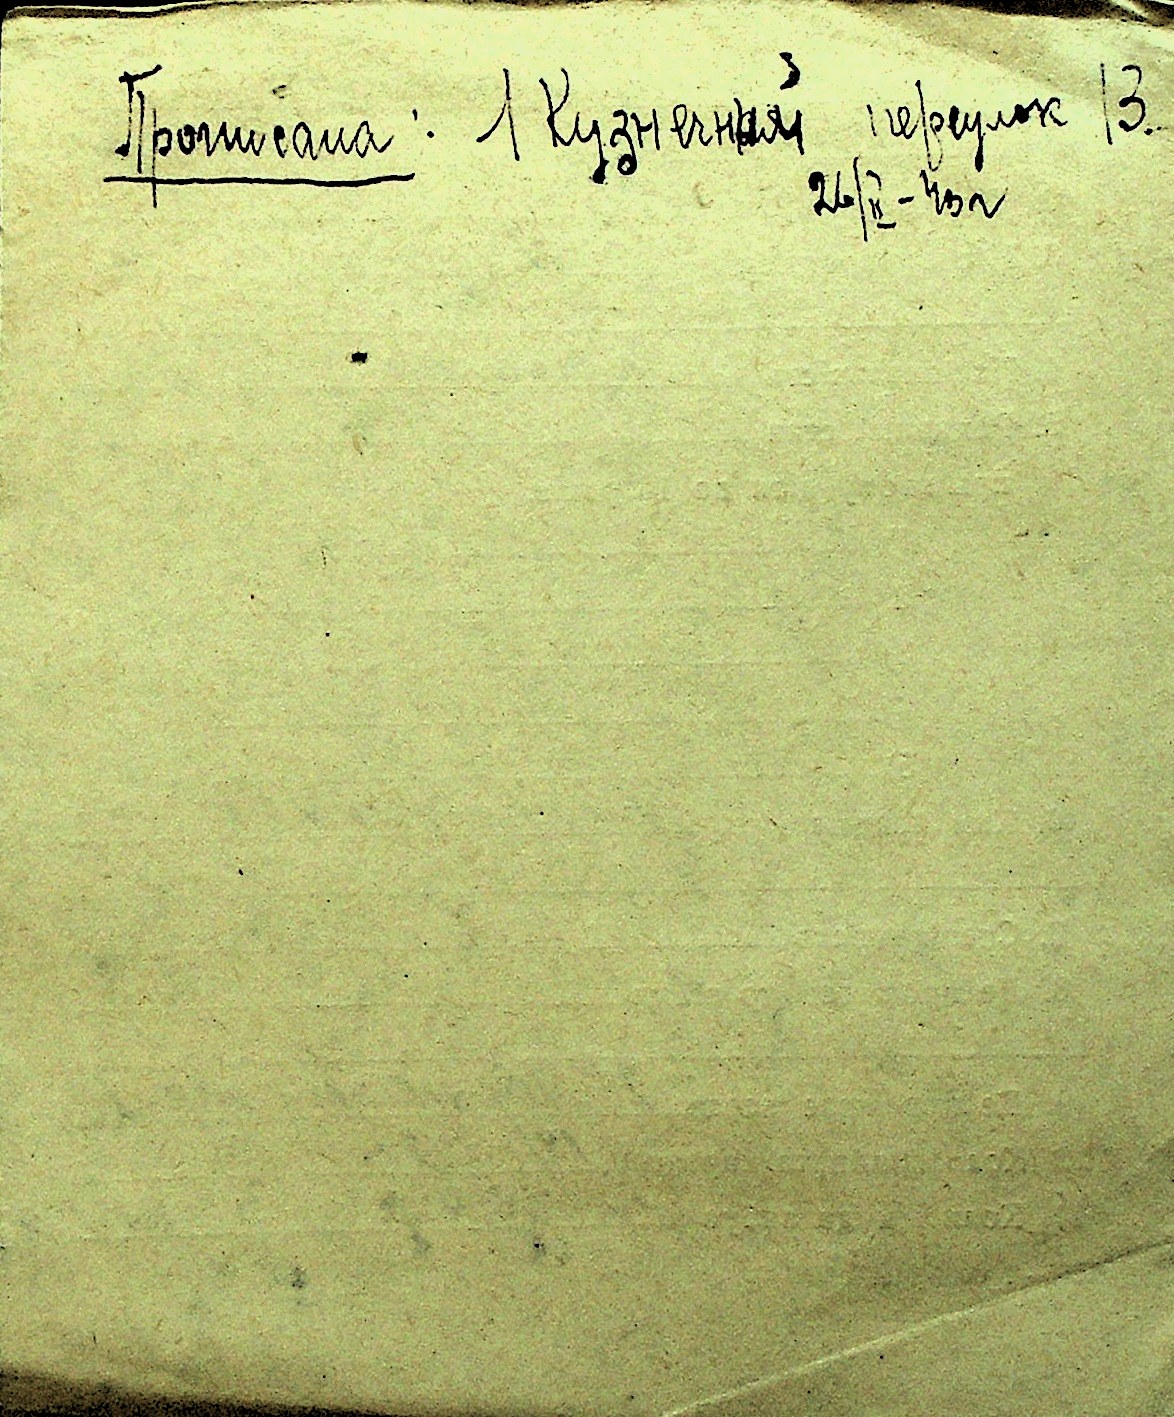 Прописана: 1 Кузнечный переулок 13.
26/II-43г